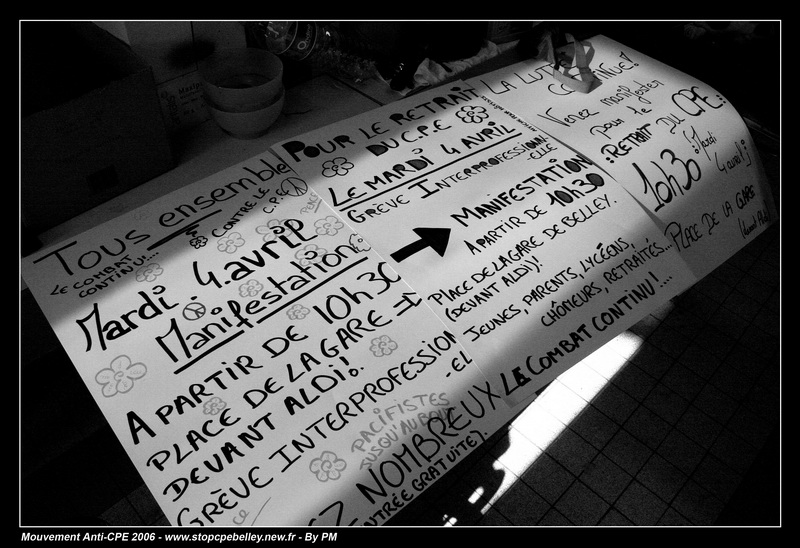 TOUS ensemble
LE COMBAT
CONTINU!...
CONTRE LE
C.P.E
Mardi 4 avril
Manifestation
A PARTIR DE 10h30
PLACE DE LA GARE
DEVANT ALDI!
GRÈVE INTERPROFESSION
-EL
PACIFISTES
JUSQU'AU BOUT
NOMBREUX
ENTRÉE GRATUITE).
POUR LE RETRAIT
DU C.P.E
LE MARDI 4 AVRIL
GRÈVE INTERPROFESSIONN
-ELLE
MANIFESTATION
A PARTIR DE 10H30
PLACE DE LA GARE DE BELLEY.
(DEVANT ALDI)!
JEUNES, PARENTS, LYCÉENS,
CHÔMEURS, RETRAITÉS...
LE COMBAT CONTINU!...
LA LUTTE
CONTINUE!
Venez manifester
pour le
RETRAIT DU CPE:
10h30
(Mardi
4 avril)
PLACE DE LA GARE
(devant Aldi)
Mouvement Anti-CPE 2006 - www.stopcpebelley.new.fr - By PM